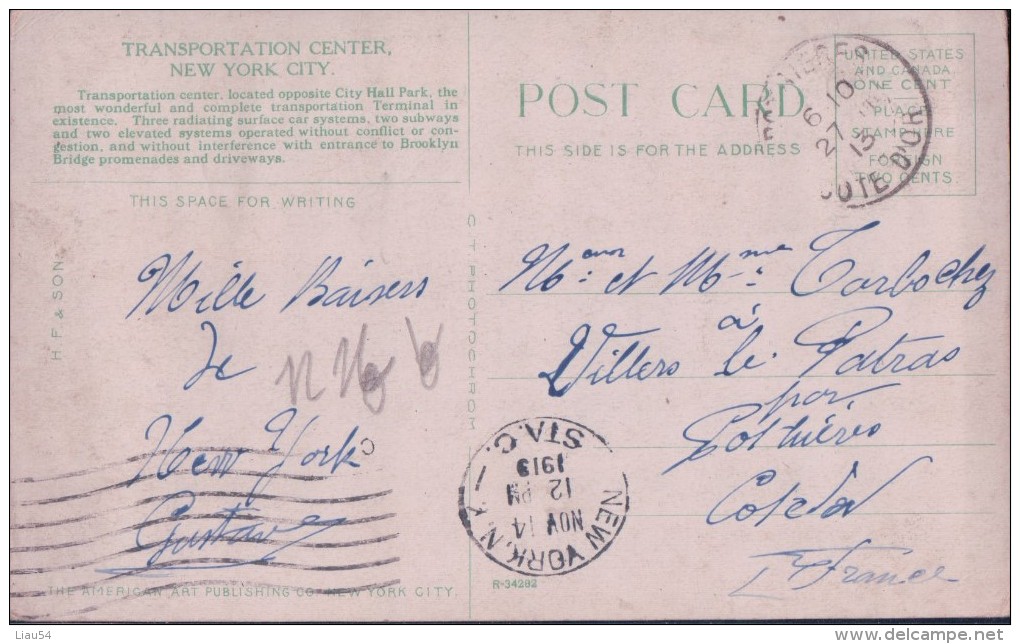 TRANSPORTATION CENTER,
NEW YORK CITY.
Transportation center, located opposite City Hall Park, the
most wonderful and complete transportation Terminal in
existence. Three radiating surface car systems, two subways
and two elevated systems operated without conflict or con-
gestion, and without interference with entrance to Brooklyn
Bridge promenades and driveways.
THIS SPACE FOR WRITING
H. F. & SON.
Mille Baisers
de
New York
Gustave
THE AMERICAN ART PUBLISHING CO. NEW YORK CITY.
C. T. PHOTOCHROM
POST CARD
THIS SIDE IS FOR THE ADDRESS
UNITED STATES
AND CANADA
ONE CENT
PLACE
STAMP HERE
FOREIGN
TWO CENTS.
6 10
27
13
COTE D'OR
Mr et Mme
à
Villers le Patras
par
Pothières
Cote d'or
France
NEW YORK, N.Y.
STA. C.
NOV 14
12 PM
1913
R-34292
Liau54
delcampe.net